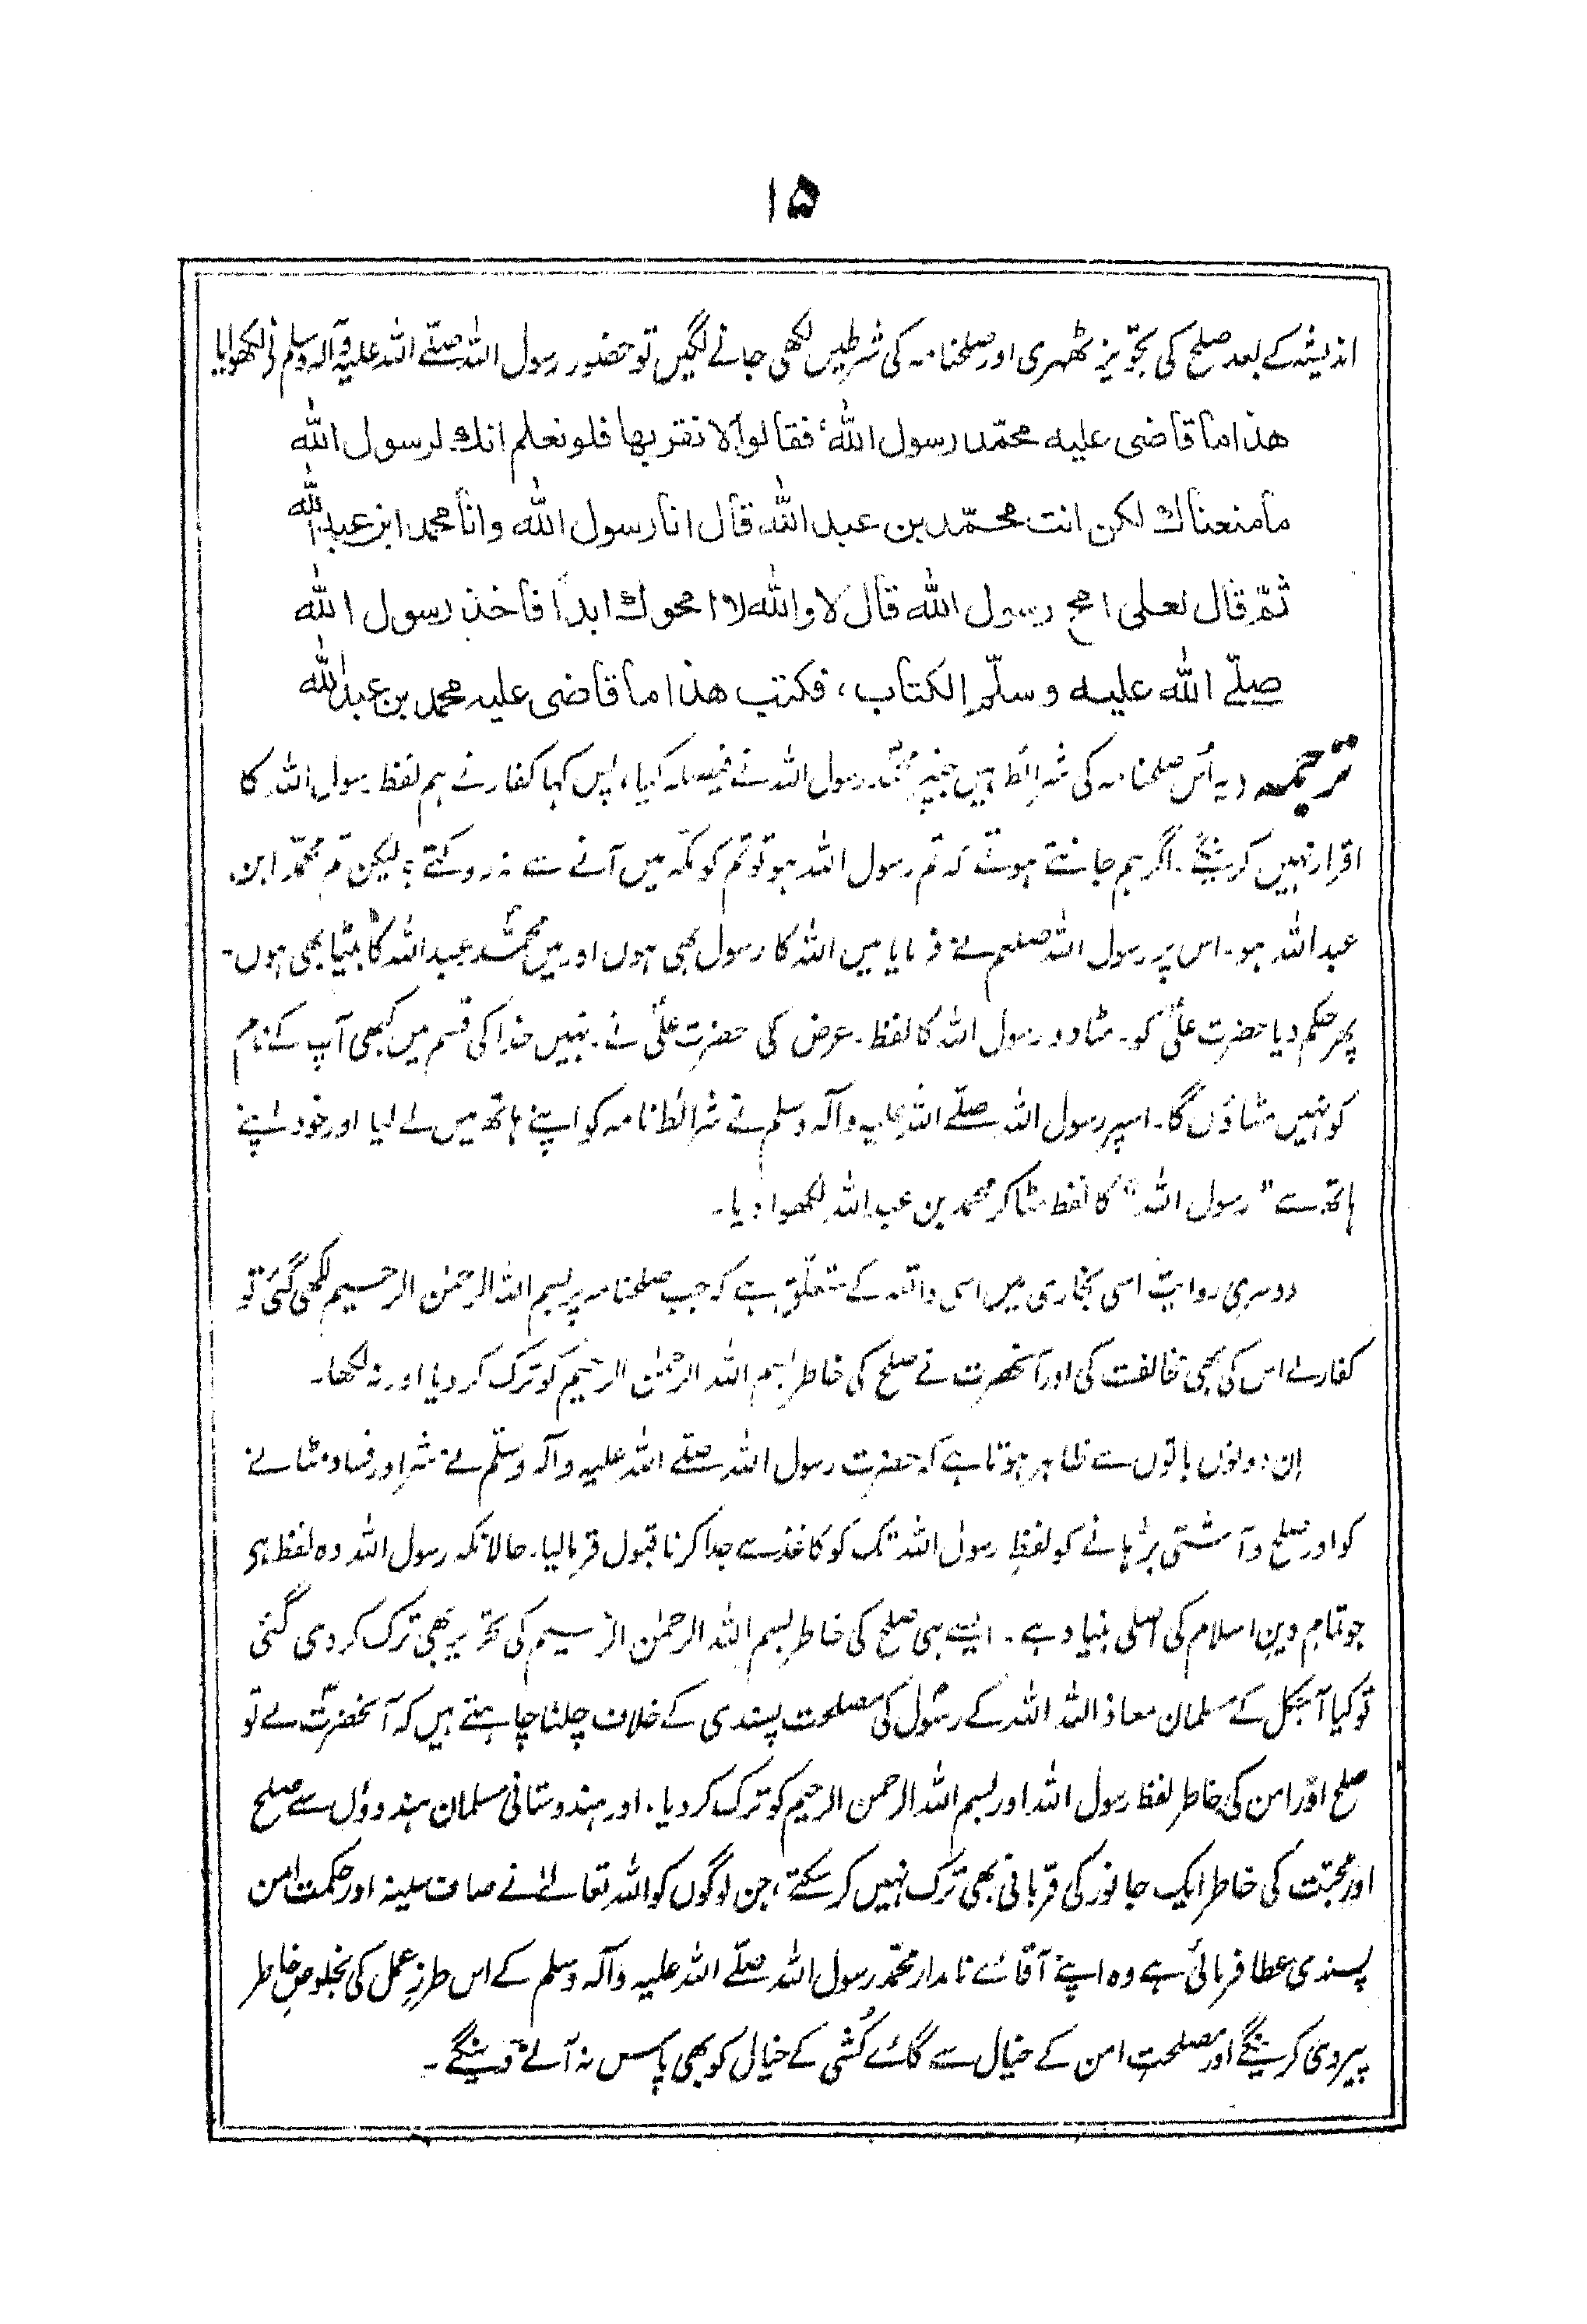 ۱۵
اندیشہ کے بعد صلح کی تجویز ٹھہری اور صلحنامہ کی شرطیں لکھی جانے لگیں تو حضور رسول اللہ صلّے اللہ علیہ وآلہ وسلم نے لکھوایا
هذا ما قاضى عليه محمّد رسول الله، فقالوا لا نقر بها فلو نعلم انك لرسول الله
ما منعناك لكن انت محمّد بن عبد الله قال انا رسول الله وانا محمد ابن عبد الله
ثمّ قال لعلى امح رسول الله قال لا والله لا امحوك ابداً فاخذ رسول الله
صلّے الله عليه وسلّم الكتاب، فكتب هذا ما قاضى عليه محمد بن عبد الله
ترجمہ (یہ اُس صلحنامہ کی شرائط ہیں جنپر محمّد رسول اللہ نے فیصلہ کیا، پس کہا کفار نے ہم لفظ رسول اللہ کا
اقرار نہیں کرینگے۔ اگر ہم جانتے ہوتے کہ تم رسول اللہ ہو تو تم کو مکّہ میں آنے سے نہ روکتے، لیکن تم محمّد ابن
عبد اللہ ہو۔ اس پر رسول اللہ صلعم نے فرمایا میں اللہ کا رسول بھی ہوں اور میں محمّد عبد اللہ کا بیٹا بھی ہوں۔
پھر حکم دیا حضرت علیؑ کو۔ مٹا دو رسول اللہ کا لفظ۔ عرض کی حضرت علیؑ نے۔ نہیں خدا کی قسم میں کبھی آپ کے نام
کو نہیں مٹاؤں گا۔ اسپر رسول اللہ صلّے اللہ علیہ وآلہ وسلم نے شرائط نامہ کو اپنے ہاتھ میں لے لیا اور خود اپنے
ہاتھ سے "رسول اللہ" کا لفظ مٹا کر محمد بن عبد اللہ لکھوا دیا۔
دوسری روایت اسی بخاری میں اسی واقعہ کے متعلّق ہے کہ جب صلحنامہ پر بسم اللہ الرحمٰن الرحیم لکھی گئی تو
کفار نے اس کی بھی مخالفت کی اور آنحضرت نے صلح کی خاطر بسم اللہ الرحمٰن الرحیم کو ترک کر دیا اور نہ لکھا۔
ان دونوں باتوں سے ظاہر ہوتا ہے کہ حضرت رسول اللہ صلّے اللہ علیہ وآلہ وسلّم نے شر اور فساد مٹانے
کو اور صلح و آشتی بڑہانے کو لفظِ رسول اللہ تک کو کاغذ سے جدا کرنا قبول فرمالیا۔ حالانکہ رسول اللہ وہ لفظ ہے
جو تمام دینِ اسلام کی اصلی بنیاد ہے۔ ایسے ہی صلح کی خاطر بسم اللہ الرحمٰن الرحیم کی تحریر بھی ترک کر دی گئی
تو کیا آجکل کے مسلمان معاذ اللہ اللہ کے رسولؐ کی مصلحت پسندی کے خلاف چلنا چاہتے ہیں کہ آنحضرتؐ نے تو
صلح اور امن کی خاطر لفظ رسول اللہ اور بسم اللہ الرحمن الرحیم کو ترک کر دیا۔ اور ہندوستانی مسلمان ہندوؤں سے صلح
اور محبّت کی خاطر ایک جانور کی قربانی بھی ترک نہیں کر سکتے، جن لوگوں کو اللہ تعالےٰ نے صاف سینہ اور حکمت امن
پسندی عطا فرمائی ہے وہ اپنے آقائے نامدار محمّد رسول اللہ صلّے اللہ علیہ وآلہ وسلم کے اس طرزِ عمل کی بخلوصِ خاطر
پیروی کرینگے اور مصلحت امن کے خیال سے گائے کُشی کے خیال کو بھی پاس نہ آنے دینگے۔